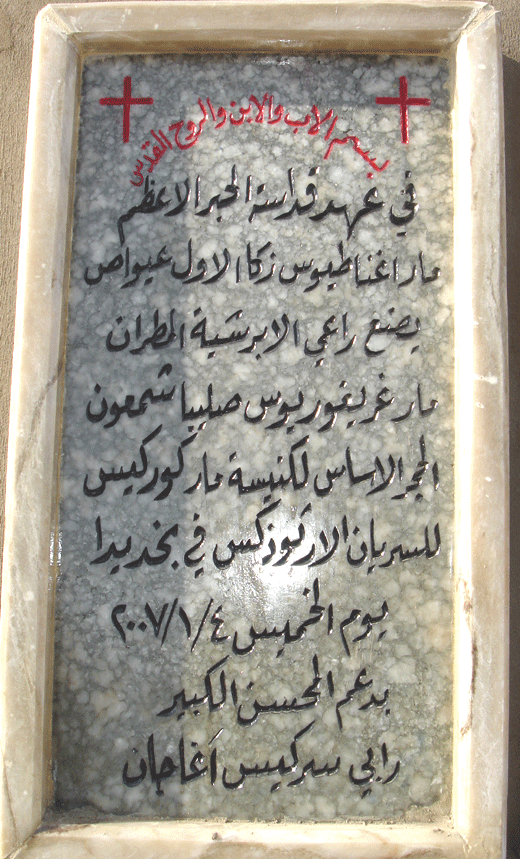 بسم الاب والابن والروح القدس
في عهد قداسة الحبر الاعظم
مار اغناطيوس زكا الاول عيواص
يضع راعي الابرشية المطران
مار غريغوريوس صليبا شمعون
الحجر الاساس لكنيسة مار كوركيس
للسريان الارثوذكس في بخديدا
يوم الخميس ٤/١/٢٠٠٧
بدعم المحسن الكبير
رابي سركيس آغاجان